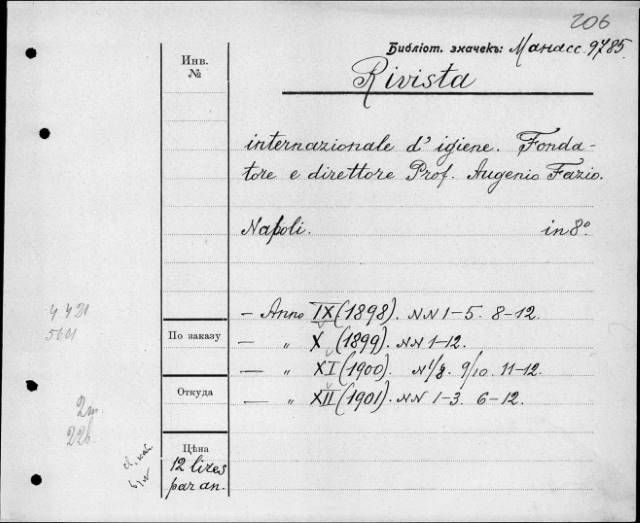 206
Библіот. значекъ: Манасс. 9785.
Инв.
№
Rivista
internazionale d' igiene. Fonda-
tore e direttore Prof. Augenio Fazio.
Napoli. in 8°
4421
— Anno IX (1898). NN 1-5. 8-12.
По заказу
— „ X (1899). NN 1-12.
— „ XI (1900). N 1/8. 9/10. 11-12.
Откуда
— „ XII (1901). NN 1-3. 6-12.
2т
22б
Цѣна
12 lires
par an.